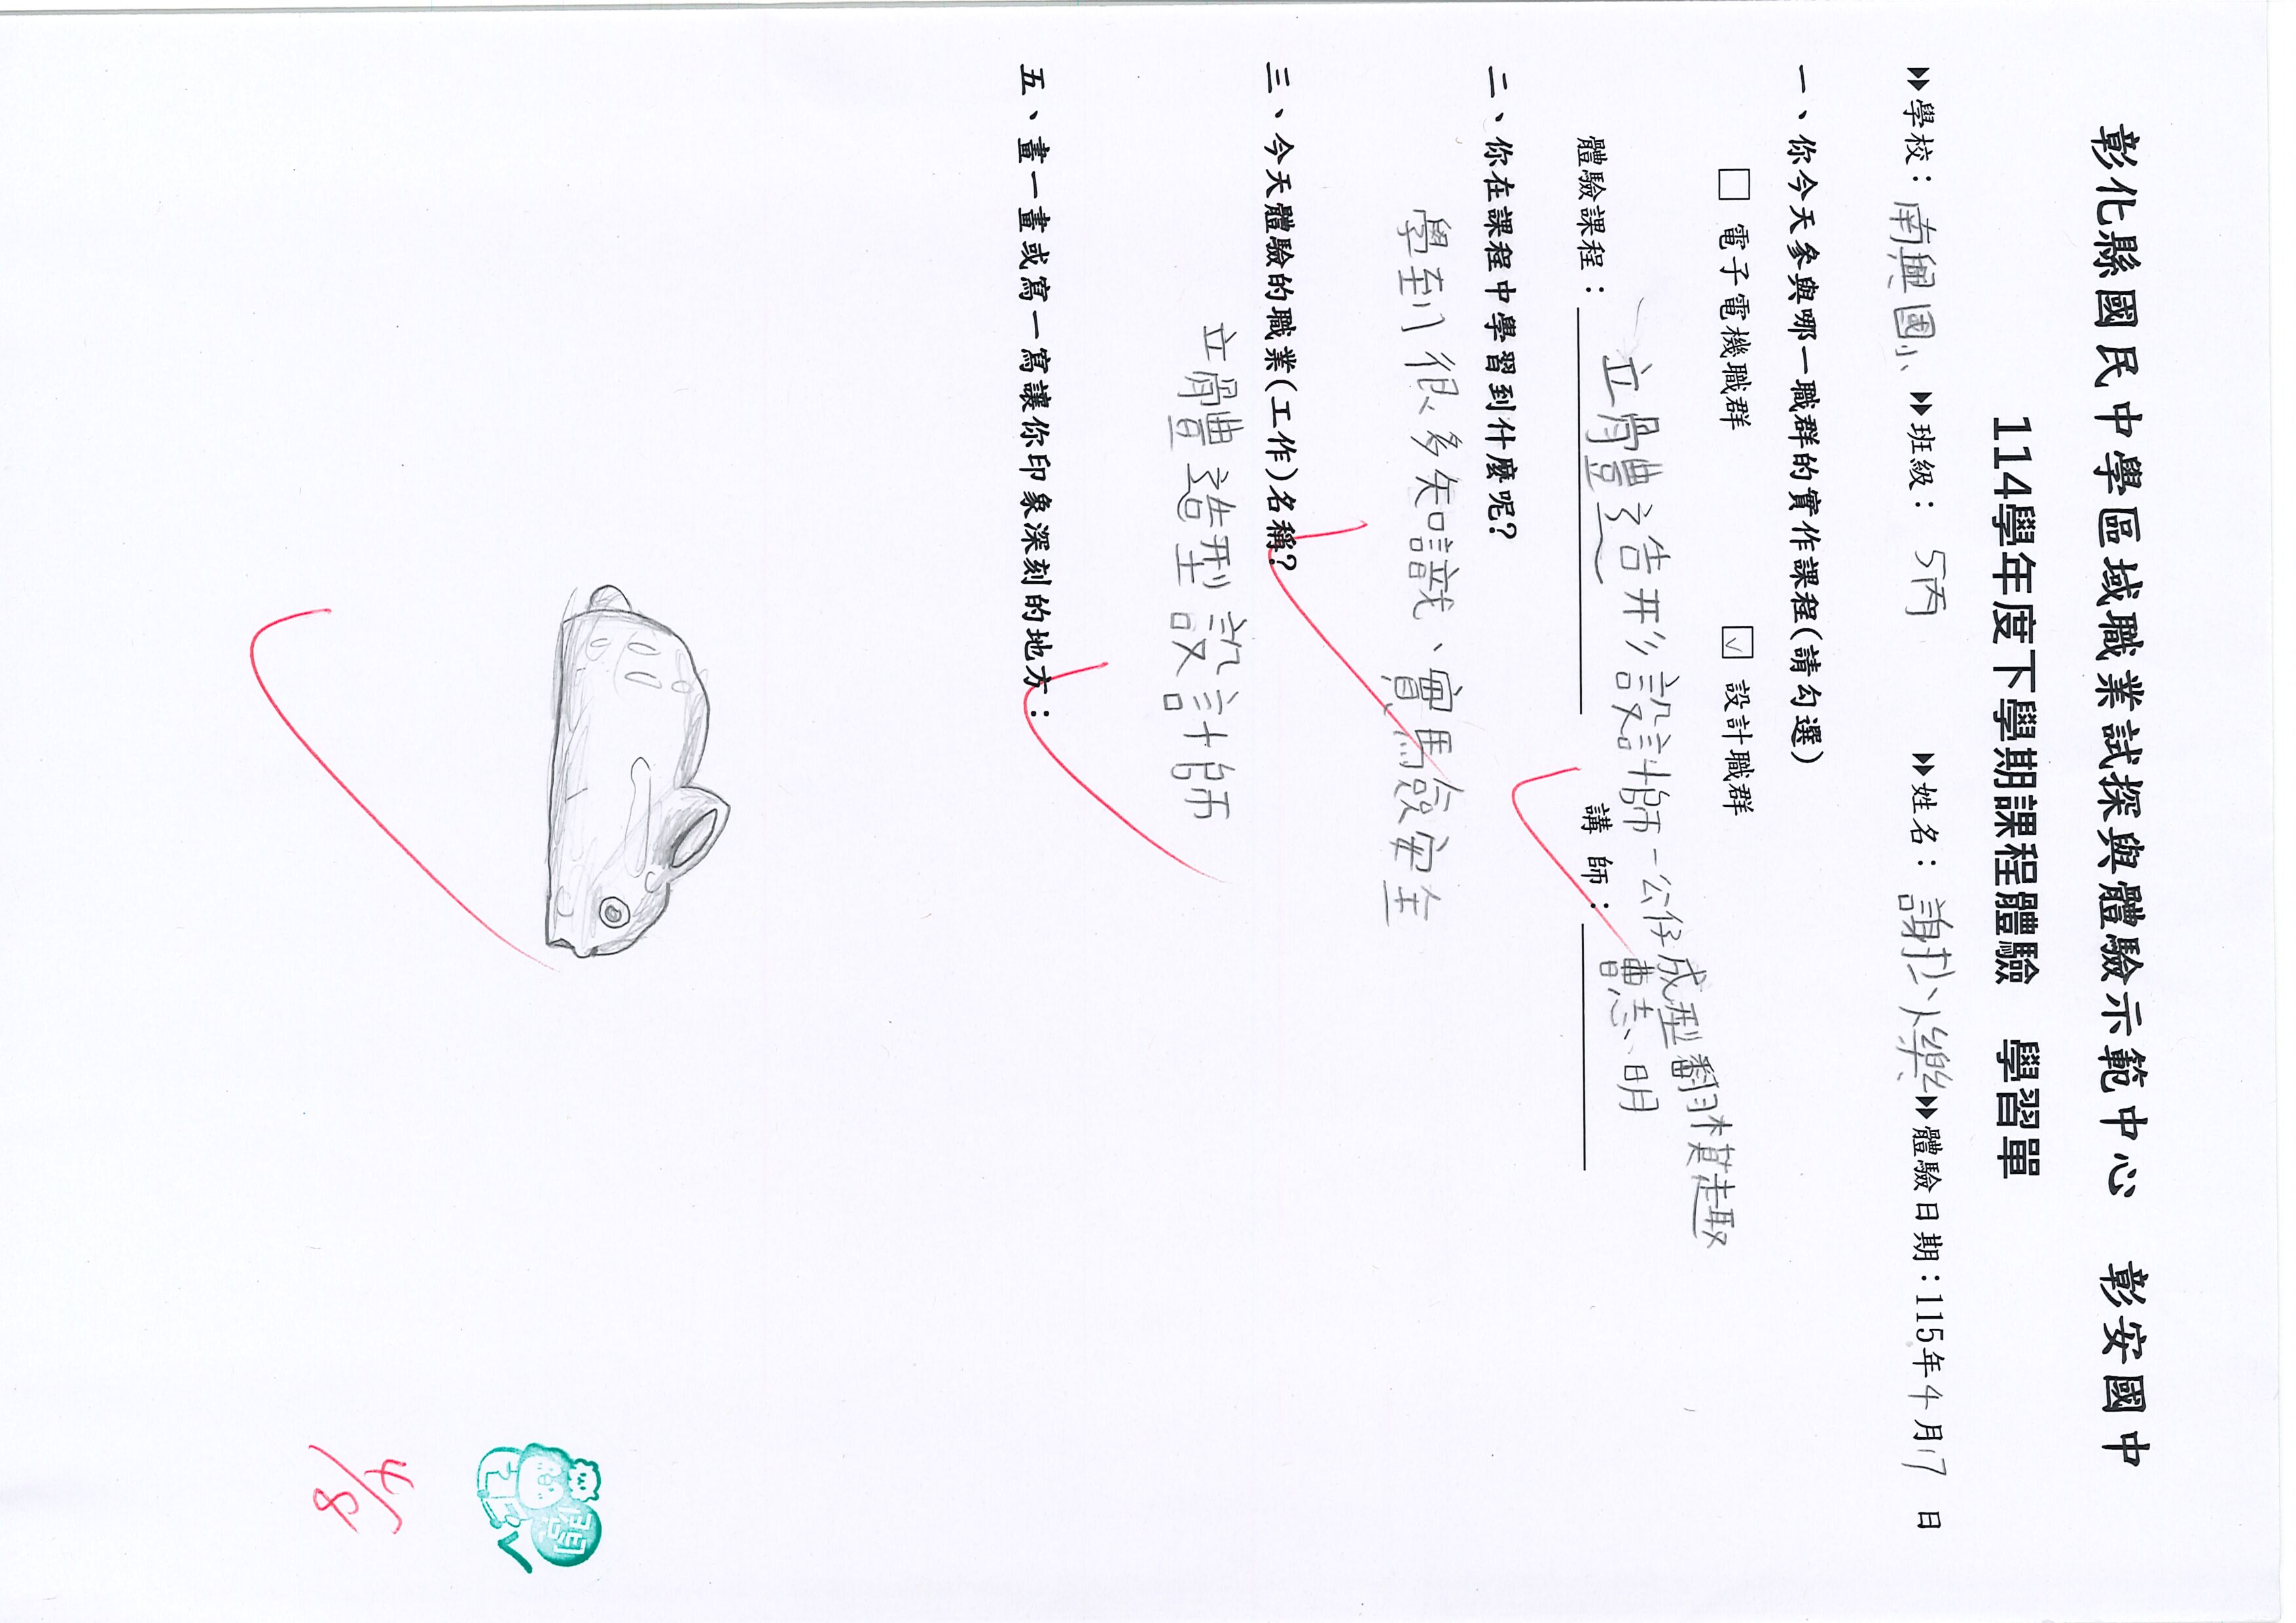 彰化縣國民中學區域職業試探與體驗示範中心 彰安國中
114學年度下學期課程體驗 學習單
學校：南興國小 班級：5丙 姓名：謝 樂 體驗日期：115年4月17日
一、你今天參與哪一職群的實作課程(請勾選)
□ 電子電機職群 ☑ 設計職群
體驗課程：立體造形設計師-公仔成型翻模趣 講師：曹志明
二、你在課程中學習到什麼呢?
學到很多知識、實驗安全
三、今天體驗的職業(工作)名稱?
立體造型設計師
五、畫一畫或寫一寫讓你印象深刻的地方：
閱